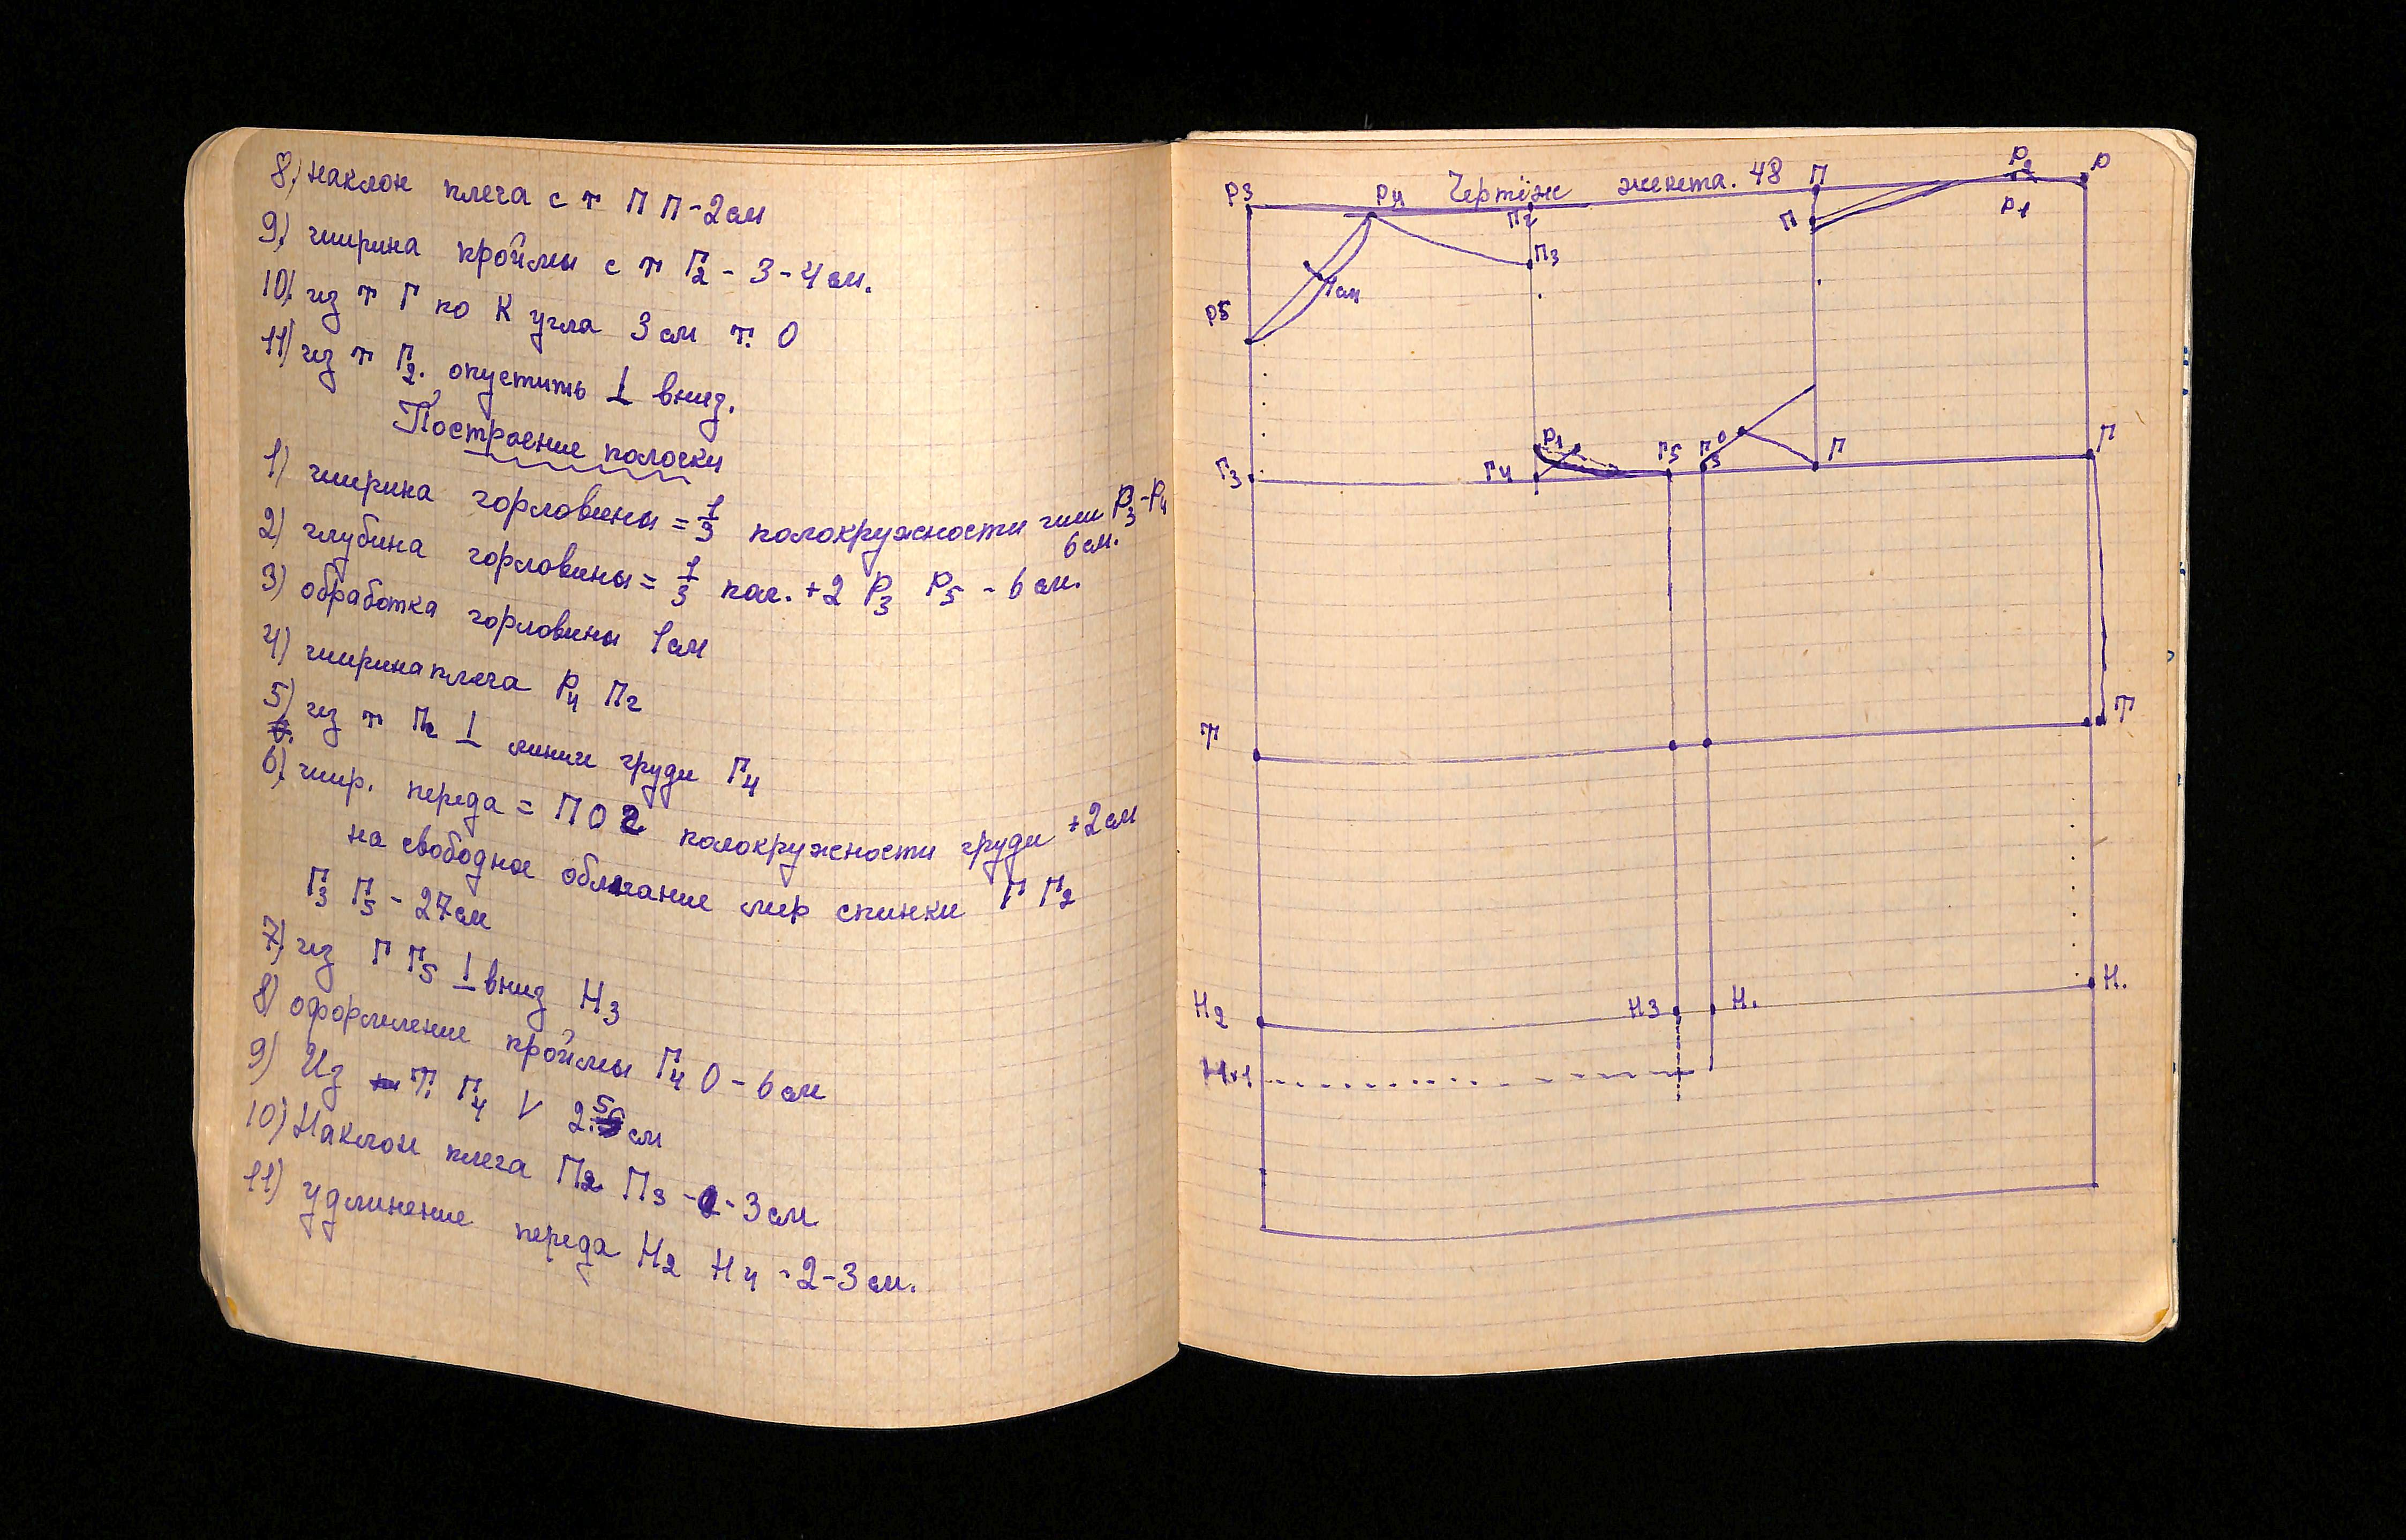 8) Наклон плеча с т П П - 2 см
9) ширина проймы с т Г2 - 3 - 4 см.
10) из т Г по К угла 3 см т. О
11) из т Г2. опустить ⊥ вниз.
Построение полочки
1) ширина горловины = 1/3 полокружности шеи Р3 - Р4
6 см.
2) глубина горловины = 1/3 пол. + 2 Р3 Р5 - 6 см.
3) обработка горловины 1 см
4) ширина плеча Р4 П2
5) из т П2 ⊥ линии груди Г4
6) шир. переда = ПО2 полокружности груди + 2 см
на свободное облегание мер спинки Г Г2
Г3 Г5 - 27 см
7) из Г Г5 ⊥ вниз Н3
8) оформление проймы Г4 О - 6 см
9) Из т. Г4 V 2.5 см
10) Наклон плеча П2 П3 - 3 см
11) удлинение переда Н2 Н4 - 2 - 3 см.
Чертёж жекета. 48
Р3 Р4 П2 П Р2 Р
П3 П Р1
1 см
Р5
Р1 О
Г3 Г4 Г5 Г3 П Г
Т Т
Н2 Н3 Н. Н.